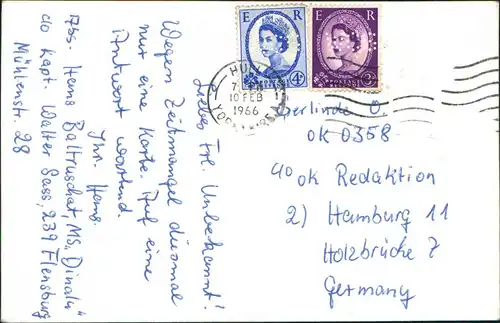 E R
E R
4D
HULL
10 FEB
1966
Liebes Frl. Unbekannt!
Wegen Zeitmangel diesmal
nur eine Karte. Auf eine
Antwort wartend.
Ihr. Hans.
Abs. Hans Baltruschat, MS „Dinalu“
c/o Kapt. Walter Sass, 239 Flensburg
Mühlenstr. 28
Gerlinde O.
OK 0358
c/o OK Redaktion
2) Hamburg 11
Holzbrücke 7
Germany